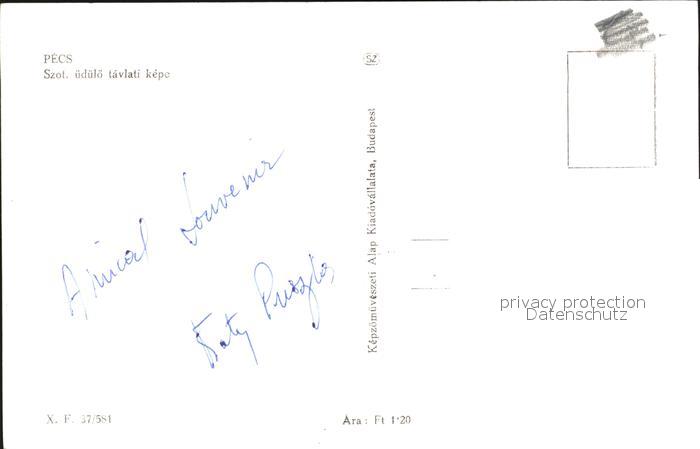 PÉCS
Szot. üdülő távlati képe
SZ
Képzőművészeti Alap Kiadóvállalata, Budapest
Amical Souvenir
Puszta
privacy protection
Datenschutz
X. F. 37/581
Ára: Ft 1·20